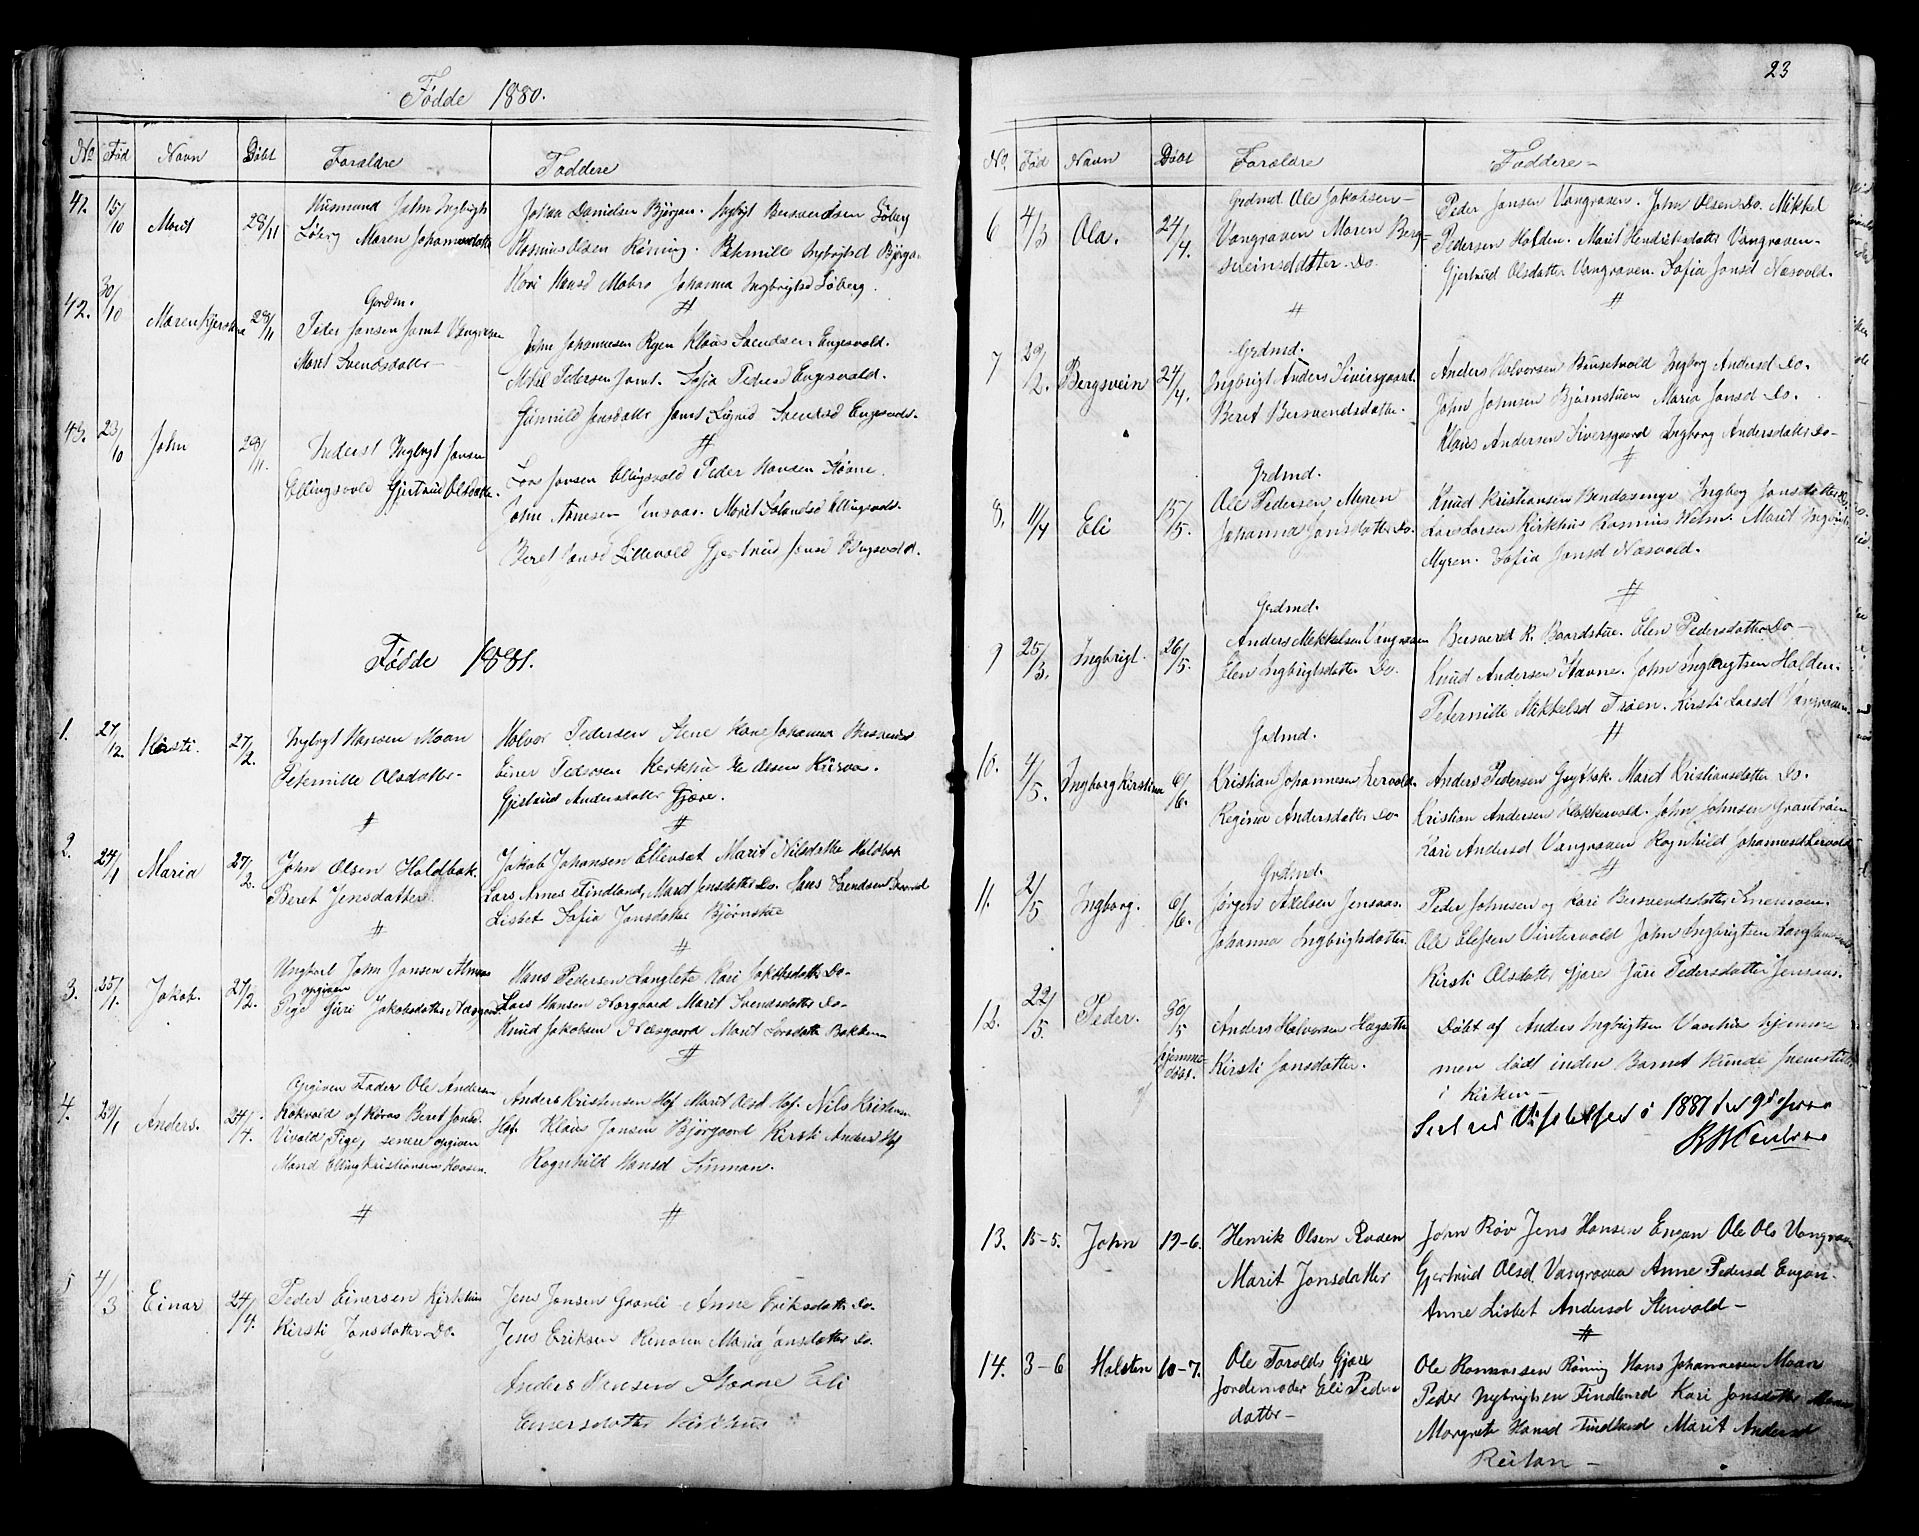 Fødde 1880.
No Fød Navn Døbt Forældre Faddere
41. 15/10 Marit 28/11 Husmand John Ingbrigts
Løberg Maren Johannesdatter
Johan Danielsen Bjørgan. Ingbrigt Bersvendsen Løberg
Rasmus Olsen Røning. Peternille Ingbrigtsd Bjørga
Kari Hansd Mobro Johanna Ingbrigtsd Løberg.
#
42. 30/10 Maren Kjerstina 28/11 Gordm.
Peder Jansen Jamt Vangraven
Marit Svendsdatter
John Johannesen Ryen Klaus Svendsen Engesvold.
Mikel Pedersen Jamt. Sofia Pedersd Engesvold.
Gunnild Jonsdatter Jamt Sigrid Svendsd Engesvold.
#
43. 23/10 John 28/11 Inderst Ingbrigt Jonsen
Ellingsvold Gjertrud Olsdatter.
Lars Jonsen Ellingsvold Peder Hansen Støvne.
John Arnesen Jensaas. Marit Ellingsvold.
Beret Jonsd Lillevold Gjertrud Jonsd
Fødde 1881.
1. 27/12 Kirsti. 27/2. Ingbrigt Hansen Moan
Petternille Olsdatter
#
Halvor Pedersen Stene Kone Johanna Bersvends
Einer Pedersen Kirkhus Ole Olsen Kurvaas.
Gjertrud Andersdatter Gjære.
#
2. 24/1 Maria 27/2. John Olsen Holdbak.
Beret Jensdatter
#
Jakob Johansen Ellevset Marit Nilsdatter Holdbak
Lars Arnes Findland, Marit Jensdatter Do. Hans Svendsen
Lisbet Sofia Jonsdatter Bjørnstue
#
3. 25/1. Jakob. 27/2. Ungkarl John Jonsen Almaas
opgiven
Pige Guri Jakobsdatter
Hans Pedersen Langlete Kari Jakobsdatter Do
Lars Hansen Norgaard Marit Svendsdatter Do
Knud Jakobsen Næsgaard Marit Larsdatter Bakken
#
4. 29/1 Anders. 24/4. Opgiven Fader Ole Andersen
Kokvold af Røraas Beret Jonsd.
Vivold, Pige, senere opgiven
Mand Elling Kristiansen Hovsen.
#
Anders Kristensen Hof Marit Olsd Hof. Nils Kristensen
Hof. Klaus Jonsen Bjørgaard Kirsti Andersd Hof
Rognhild Hansd Sunnan.
#
5 4/3 Einar 24/4. Peder Einersen Kirkhus
Kirsti Jonsdatter Do.
Jens Jonsen Graali Anne Eriksdatter Do.
Jens Eriksen Renaaen Maria Jansdatter Do
Anders Hansen Støvne Eli
Einersdatter Kirkhus
23
No. Fød Navn Døbt Forældre Faddere
6 4/3 Ola. 24/4. Grdmd Ole Jakobsen
Vangraven Maren Berg-
sveinsdatter Do
#
Peder Jansen Vangraven. John Olsen Do. Mikkel
Pedersen Halden. Marit Henriksdatter Vangraven
Gjertrud Olsdatter Vangraven. Sofia Jonsd Næsvold.
#
7 29/2. Bergsvein 24/4. Grdmd.
Ingbrigt Anders Siversgaard.
Beret Bersvendsdatter.
Anders Halvorsen Bonsetvold Ingborg Andersd Do.
John Johnsen Bjørnstuen Maria Jonsd Do.
Klaus Andersen Siversgaard Ingborg Andersdatter Do
#
8. 11/4 Eli 15/5. Grdmd.
Ole Pedersen Myren
Johanna Jonsdatter Do.
Knud Kristiansen Bendosenge Ingborg Jonsdatter Do.
Lars Larsen Kirkhus Rasmus Welm. Marit Ingbrigts
Myren. Sofia Jonsd Næsvold.
#
9 25/3. Ingbrigt. 26/5. Grdmd.
Anders Mikkelsen Vangraven
Elen Ingbrigtsdatter Do.
Bersvend R. Baardstue. Elen Pedersdatter Do
Knud Andersen Stavne. John Ingbrigtsen Halden.
Petternille Mikkelsd Trøen. Kirsti Larsd Vangraven.
#
10. 4/5. Ingborg Kirstina 6/6. Grdmd.
Kristian Johannesen Lervold.
Regina Andersdatter Do
Anders Pedersen Grytbak. Marit Kristiansdatter Do.
Kristian Andersen Klokkervold. John Johnsen Grantrøen
Kari Andersd Vangraven Rognhild Johannesd Lervold
#
11. 2/5 Ingborg. 6/6. Grdmd.
Jørgen Axelsen Jensaas.
Johanna Ingbrigtsdatter.
Peder Johnsen og Kari Bersvendsdatter Knemoen.
Ole Elefsen Vintervold John Ingbrigtsen Langland
Kirsti Olsdatter Gjære Guri Pedersdatter Jensaas.
12. 22/5. Peder. 30/5
hjemme-
døbt. Anders Halvorsen Hagset
Kirsti Jonsdatter.
Døbt af Anders Ingbrigtsen Vaarhus hjemme
men dødt inden Barnet kunde fremstilles
i Kirken
Seet ved Visitatsen i 1881 den 9de Juni
13. 15-5. John 19-6. Henrik Olsen Aaden
Marit Jonsdatter
John Røv Jens Hansen Engan Ole Ols Vangraven
Gjertrud Olsd. Vangraven Anne Pedersd Engan
Anne Lisbet Andersd Stenvold
#
14. 3-6 Halsten 10-7. Ole Tarolds Gjære
Jordemoder Eli Peders
datter
Ole Rasmussen Røning Hans Johannesen Moan
Peder Ingbrigtsen Findland Kari Jonsdatter Moan
Margrete Hansd Findland Marit Andersd
Reitan